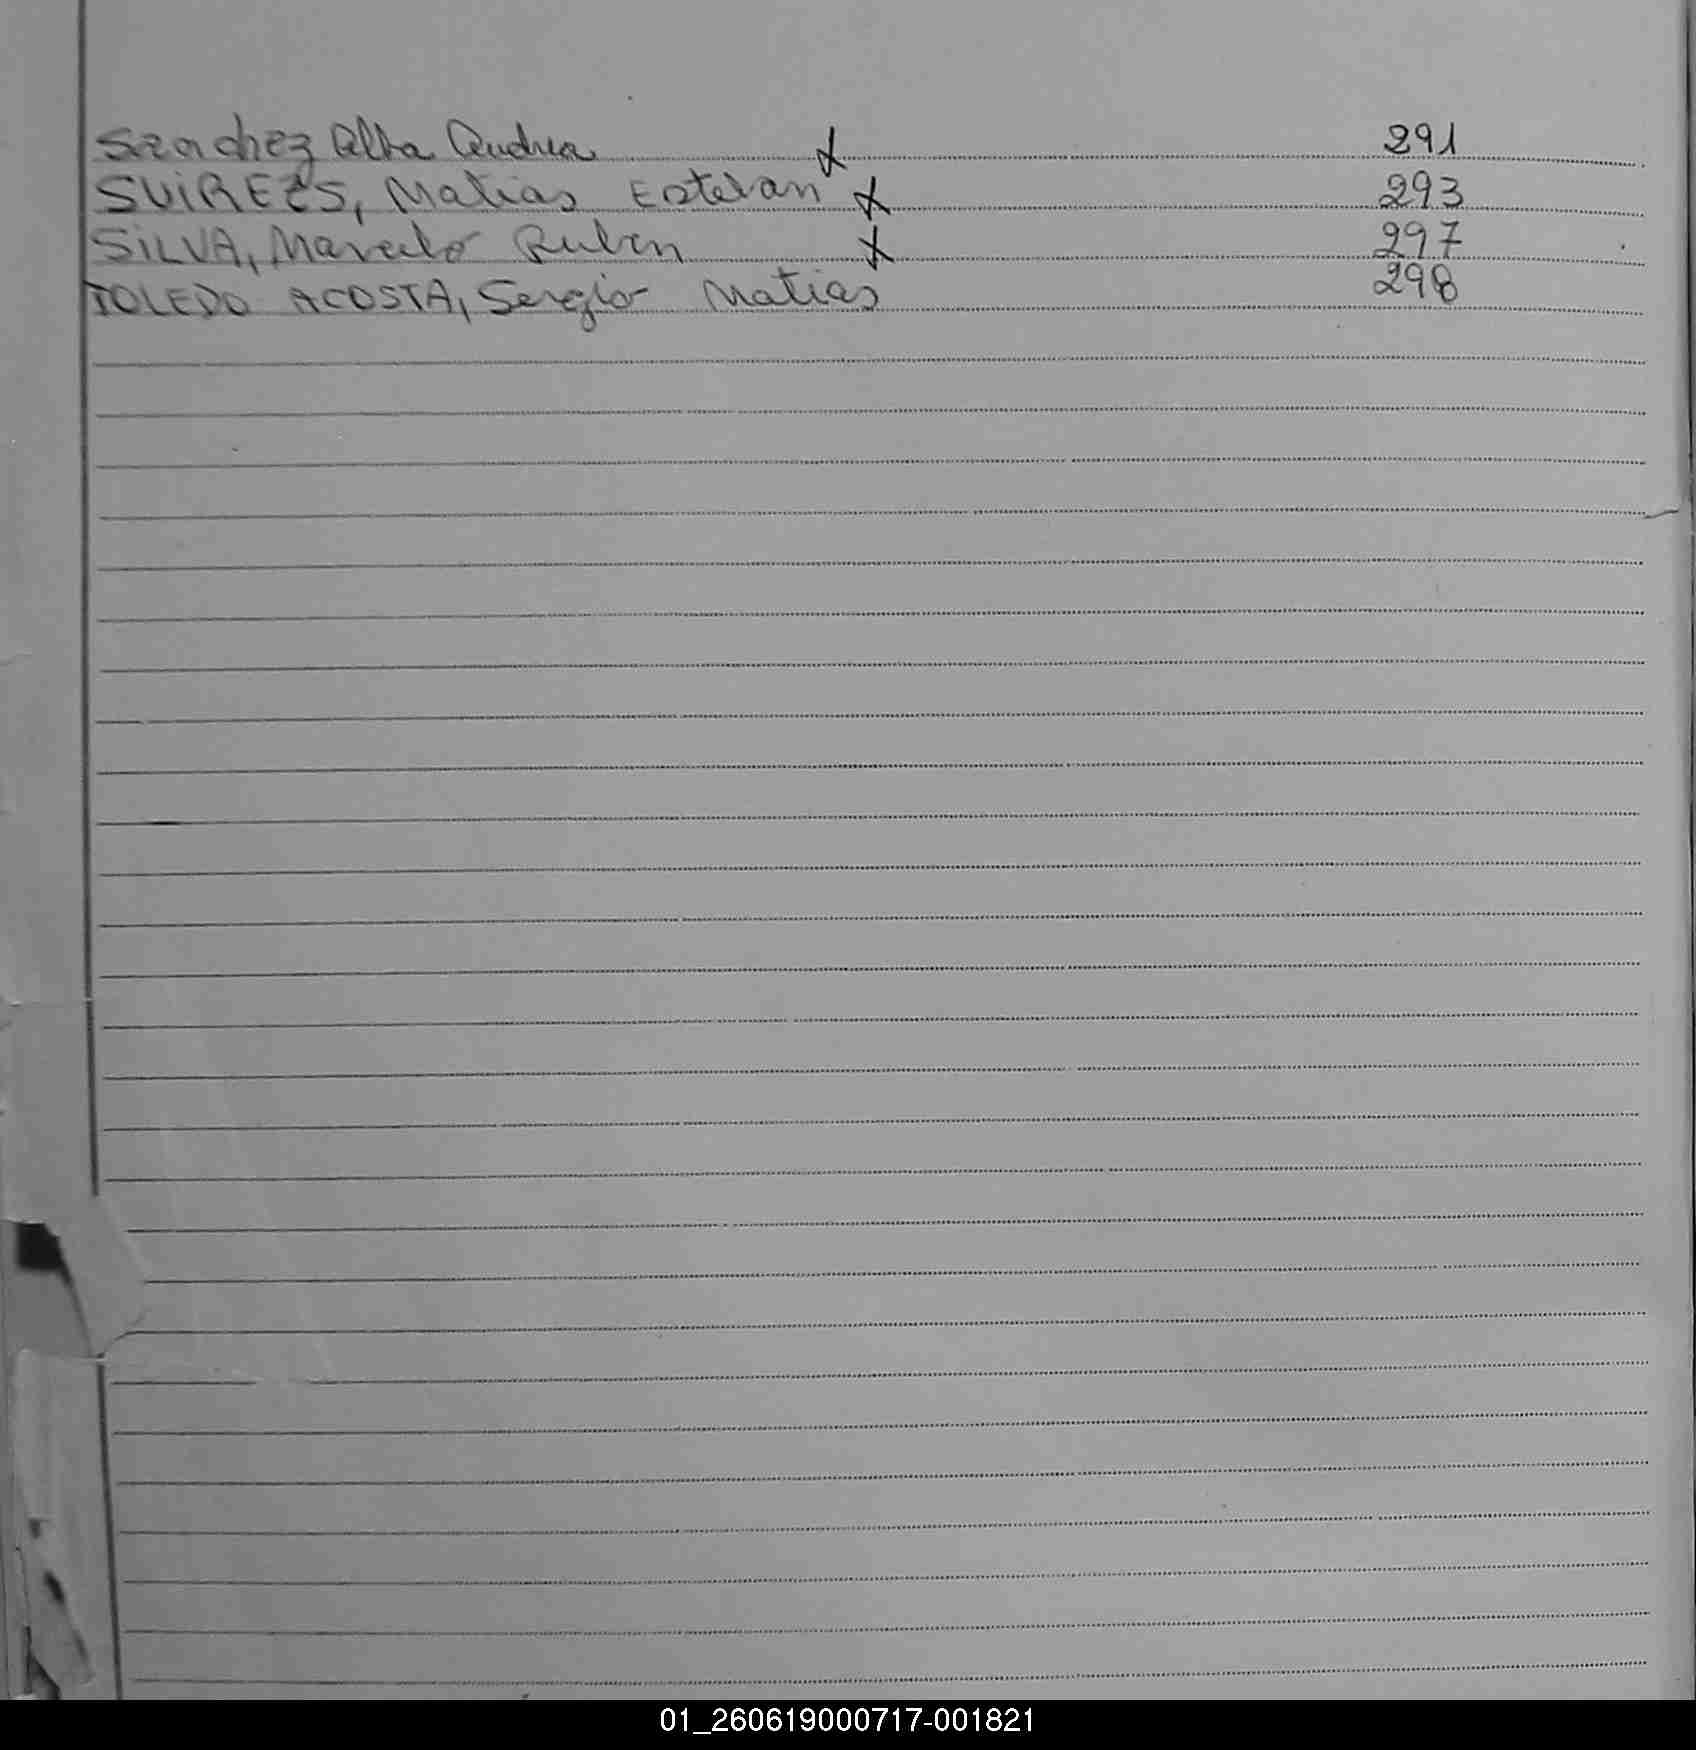 Sanchez Alba Andrea X 291
SUIREZS, Matias Esteban X 293
SILVA, Marcelo Ruben X 297
TOLEDO ACOSTA, Sergio Matias 298
01_260619000717-001821